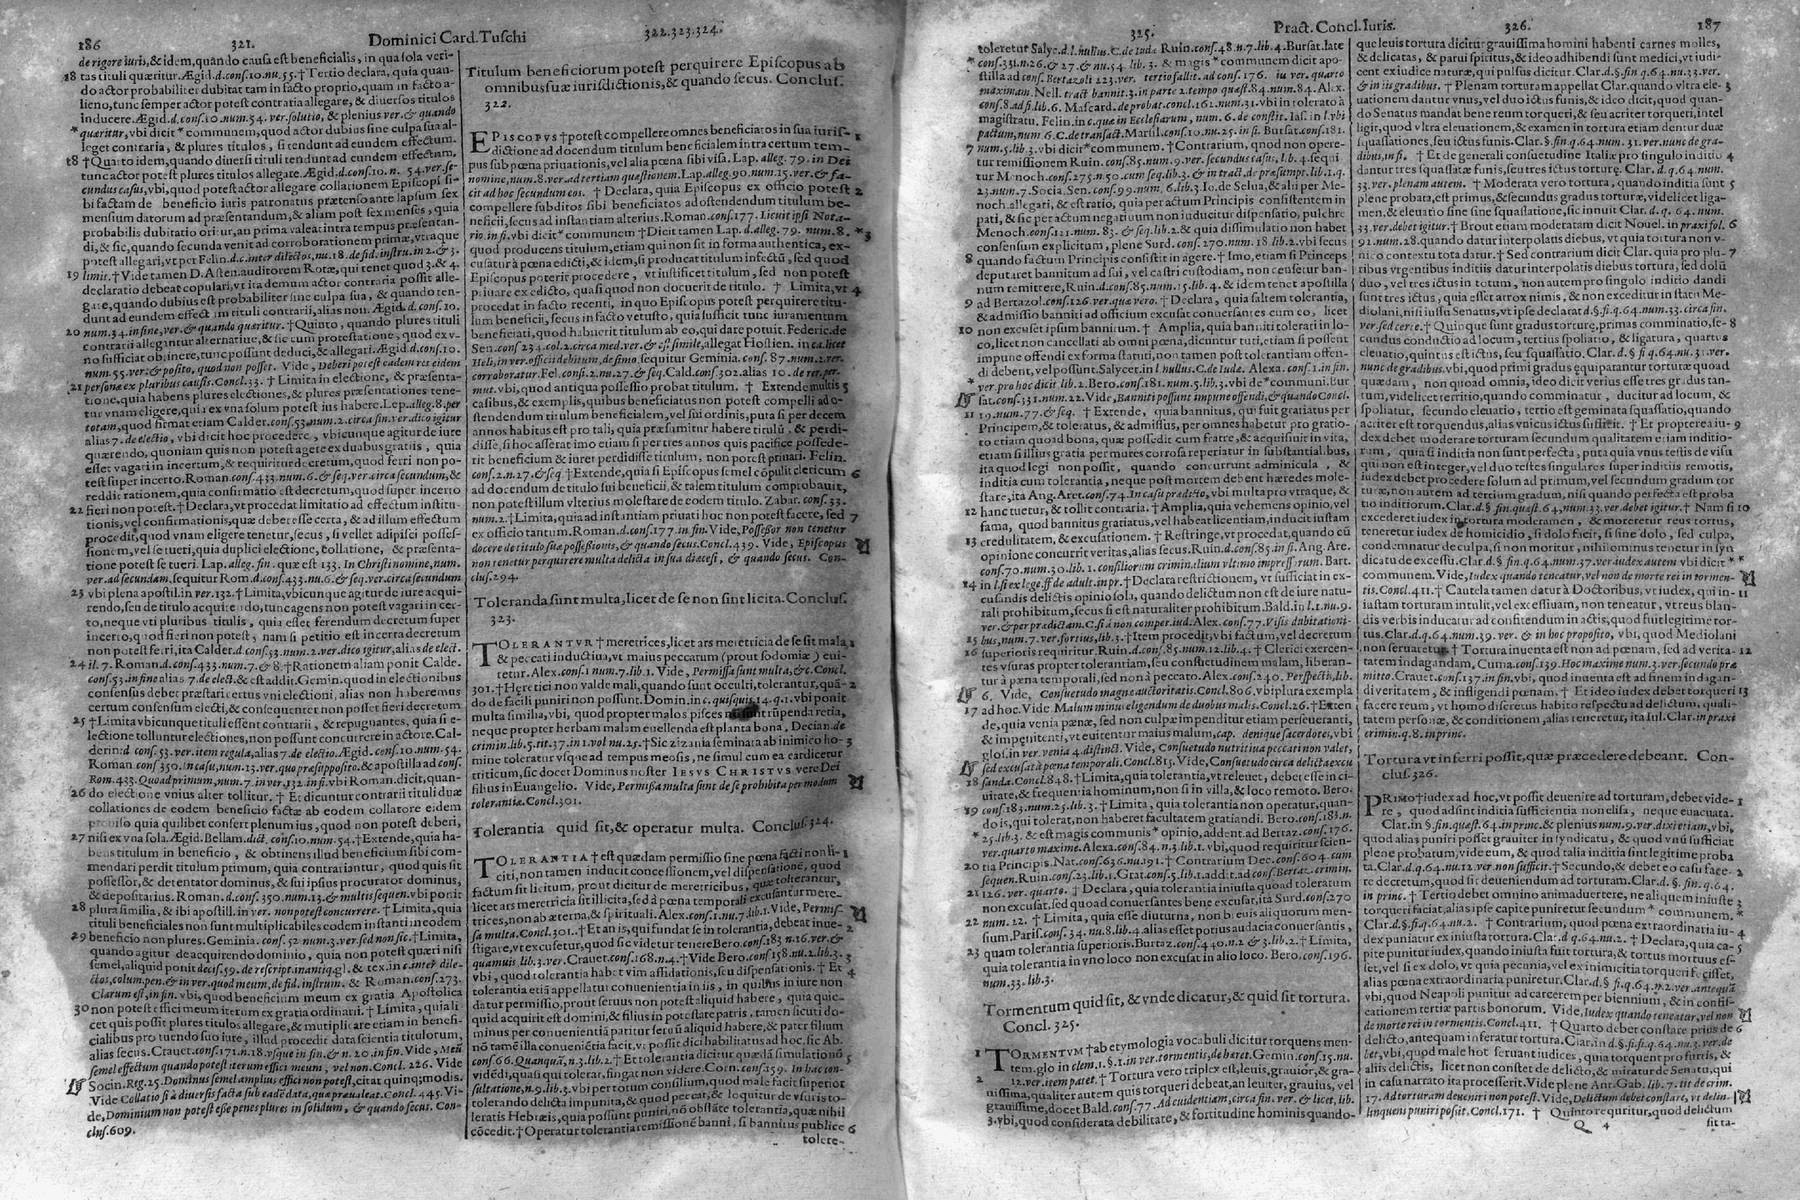 186 321. Dominici Card. Tuschi 322.323.324.
de rigore iuris, & idem, quando causa est beneficialis, in qua sola veri-
18 tas tituli quæritur. Ægid. d. cons. 10. nu. 55. † Tertio declara, quia quan-
do actor probabiliter dubitat tam in facto proprio, quam in facto a-
lieno, tunc semper actor potest contraria allegare, & diuersos titulos
inducere. Ægid. d. cons. 10. num. 54. ver. solutio, & plenius ver. & quando
* quæritur, vbi dicit * communem, quod actor dubius sine culpa sua al-
leget contraria, & plures titulos, si tendunt ad eundem effectum.
18 † Quarto idem, quando diuersi tituli tendunt ad eundem effectum,
tunc actor potest plures titulos allegare. Ægid. d. cons. 10. n. 54. ver. se-
cundus casus, vbi, quod potest actor allegare collationem Episcopi si-
bi factam de beneficio iuris patronatus prætenso ante lapsum sex
mensium datorum ad præsentandum, & aliam post sex menses, quia
probabilis dubitatio oritur, an prima valeat intra tempus præsentan-
di, & sic, quando secunda venit ad corroborationem primæ, vtraque
potest allegari, vt per Felin. d. c. inter dilectos, nu. 18. de fid. instru. in 2. & 3.
19 limit. † Vide tamen D. Asten. auditorem Rotæ, qui tenet quod 3. & 4.
declaratio debeat copulari, vt ita demum actor contraria possit alle-
gare, quando dubius est probabiliter sine culpa sua, & quando ten-
dunt ad eundem effectum tituli contrarij, alias non. Ægid. d. cons. 10.
20 num. 34. in fine, ver. & quando quæritur. † Quinto, quando plures tituli
contrarii allegantur alternatiue, & sic cum protestatione, quod ex v-
no sufficiat obtinere, tunc possunt deduci, & allegari. Ægid. d. cons. 10.
num. 55. ver. & posito, quod non posset. Vide, Deberi potest eadem res eidem
21 personæ ex pluribus causis. Concl. 33. † Limita in electione, & præsenta-
tione, quia habens plures electiones, & plures præsentationes tene-
tur vnam eligere, qui ex vna solum potest ius habere. Lep. alleg. 8. per
totam, quod firmat etiam Calder. cons. 53. num. 2. circa fin. ver. dico igitur
alias 7. de electio, vbi dicit hoc procedere, vbicunque agitur de iure
quærendo, quoniam quis non potest agere ex duabus gratiis, quia
esset vagari in incertum, & requiritur decretum, quod ferri non po-
test super incerto. Roman. cons. 433. num. 6. & seq. ver. circa secundum, &
reddit rationem, quia confirmatio est decretum, quod super incerto
22 fieri non potest. † Declara, vt procedat limitatio ad effectum institu-
tionis, vel confirmationis, quæ debet esse certa, & ad illum effectum
procedit, quod vnam eligere tenetur, secus, si vellet adipisci posses-
sionem, vel se tueri, quia duplici electione, collatione, & præsenta-
tione potest se tueri. Lap. alleg. fin. quæ est 133. In Christi nomine, num.
ver. ad secundam, sequitur Rom. d. cons. 433. nu. 6. & seq. ver. circa secundum
23 vbi plena apostil. in ver. 132. † Limita, vbicunque agitur de iure acqui-
rendo, seu de titulo acquirendo, tunc agens non potest vagari in cer-
to, neque vti pluribus titulis, quia esset ferendum decretum super
incerto, quod fieri non potest, nam si petitio est incerta decretum
non potest feiri, ita Calder. d. cons. 53. num. 2. ver. dico igitur, alias de elect.
24 il. 7. Roman. d. cons. 433. num. 7. & 8. † Rationem aliam ponit Calde.
cons. 53. in fine alias 7. de elect. & est addit. Gemin. quod in electionibus
consensus debet præstari certus vni electioni, alias non haberemus
certum consensum electi, & consequenter non posset fieri decretum
25 † Limita vbicunque tituli essent contrarii, & repugnantes, quia si e-
lectione tolluntur electiones, non possunt concurrere in actore. Cal-
derin: d. cons. 53. ver. item regula, alias 7. de electio. Ægid. cons. 10. num. 54.
Roman cons. 350. In casu, num. 13. ver. quo præsupposito, & apostilla ad cons.
Rom. 433. Quod primum, num. 7. in ver. 132. in fi. vbi Roman. dicit, quan-
26 do electione vnius alter tollitur. † Et dicuntur contrarii tituli duæ
collationes de eodem beneficio factæ ab eodem collatore eidem
prouiso quia quilibet confert plenum ius, quod non potest deberi,
27 nisi ex vna sola. Ægid. Bellam. dict. cons. 10. num. 54. † Extende, quia ha-
bens titulum in beneficio, & obtinens illud beneficium sibi com-
mendari perdit titulum primum, quia contrariantur, quod quis sit
possessor, & detentator dominus, & sui ipsius procurator dominus,
& depositarius. Roman. d. cons. 350. num. 13. & multis sequen. vbi ponit
28 plura similia, & ibi apostill. in ver. non potest concurrere. † Limita, quia
tituli beneficiales non sunt multiplicabiles eodem instanti in eodem
29 beneficio non plures. Geminia. cons. 52. num. 3. ver. sed non sic. † Limita,
quando agitur de acquirendo dominio, quia non potest quæri nisi
semel, aliquid ponit decis. 59. de rescript. in antiq. gl. & tex. in c. inter dile-
ctos, colum. pen. & in ver. quod meum, de fid. instrum. & Roman. cons. 273.
Clarum est, in fin. vbi, quod beneficium meum ex gratia Apostolica
30 non potest effici meum iterum ex gratia ordinarii. † Limita, quia li
cet quis possit plures titulos allegare, & mutiplicare etiam in benefi-
cialibus pro tuendo suo iure, illud procedit data scientia titulorum,
alias secus. Crauet. cons. 171. n. 18. vsque in fin. & n. 20. in fin. Vide, Meũ
semel effectum quando potest iterum effici meum, vel non. Concl. 226. Vide
Socin. Reg. 25. Dominus semel amplius effici non potest, citat quinq; modis.
Vide Collatio si à diuersis facta sub eadẽ data, qua præualeat. Concl. 445. Vi-
de, Dominium non potest esse penes plures in solidum, & quando secus. Con-
clus. 609.
Titulum beneficiorum potest perquirere Episcopus ab
omnibus suæ iurisdictionis, & quando secus. Conclus.
322.
EPISCOPVS † potest compellere omnes beneficiatos in sua iuris- 1
dictione ad docendum titulum beneficialem intra certum tem-
pus sub pœna priuationis, vel alia pœna sibi visa. Lap. alleg. 79. in Dei
nomine, num. 8. ver. ad tertiam quæstionem. Lap. alleg. 90. num. 15. ver. & fa-
cit ad hoc secundum eos. † Declara, quia Episcopus ex officio potest 2
compellere subditos sibi beneficiatos ad ostendendum titulum be-
neficii, secus ad instantiam alterius. Roman. cons. 177. Licuit ipsi Nota-
rio, in fi. vbi dicit * communem † Dicit tamen Lap. d. alleg. 79. num. 8. * 3
quod producens titulum, etiam qui non sit in forma authentica, ex-
cusatur à pœna edicti, & idem, si producat titulum infectũ, sed quod
Episcopus poterit procedere, vt iustificet titulum, sed non potest
priuare ex edicto, quasi quod non docuerit de titulo. † Limita, vt 4
procedat in facto recenti, in quo Episcopus potest perquirere titu-
lum beneficii, secus in facto vetusto, quia sufficit tunc iuramentum
beneficiati, quod habuerit titulum ab eo, qui dare potuit. Federic. de
Sen. cons. 234. col. 2. circa med. ver. & est simile, allegat Hostien. in ca. licet
Heli, in ver. officii debitum, de simo. sequitur Geminia. cons. 87. num. 2. ver.
corroboratur. Fel. cons. 2. nu. 27. & seq. Cald. cons. 302. alias 10. de rer. per-
mut. vbi, quod antiqua possessio probat titulum. † Extende multis 5
casibus, & exemplis, quibus beneficiatus non potest compelli ad o-
stendendum titulum beneficialem, vel sui ordinis, puta si per decem
annos habitus est pro tali, quia præsumitur habere titulũ, & perdi-
disse, si hoc asserat imo etiam si per tres annos quis pacifice possede-
rit beneficium & iuret perdidisse titulum, non potest priuari. Felin.
cons. 2. n. 27. & seq. † Extende, quia si Episcopus semel cõpulit clericum 6
ad docendum de titulo sui beneficii, & talem titulum comprobauit,
non potest illum vlterius molestare de eodem titulo. Zabar. cons. 33.
num. 2. † Limita, quia ad instantiam priuati hoc non potest facere, sed 7
ex officio tantum. Roman. d. cons. 177. in fin. Vide, Possessor non tenetur
docere de titulo suæ possessionis, & quando secus. Concl. 439. Vide, Episcopus
non tenetur perquirere multa delicta in sua diœcesi, & quando secus. Con-
clus. 294.
Toleranda sunt multa, licet de se non sint licita. Conclus.
323.
TOLERANTVR † meretrices, licet ars meretricia de se sit mala 1
& peccati inductiua, vt maius peccatum (prout sodomiæ) eui-
tetur. Alex. cons. 1. num. 7. lib. 1. Vide, Permissa sunt multa, &c. Concl.
301. † Heretici non valde mali, quando sunt occulti, tolerantur, quã- 2
do de facili puniri non possunt. Domin. in c. quisquis. 14. q. 1. vbi ponit
multa similia, vbi, quod propter malos pisces rumpenda retia,
neque propter herbam malam euellenda est planta bona, Decian. de
crimin. lib. 5. tit. 37. in 1. vol. nu. 25. † Sic zizania seminata ab inimico ho- 3
mine tolerantur vsque ad tempus messis, ne simul cum ea cardicetur
triticum, sic docet Dominus noster IESVS CHRISTVS vere Dei
filius in Euangelio. Vide, Permissa multa sunt de se prohibita per modum
tolerantia. Concl. 301.
Tolerantia quid sit, & operatur multa. Conclus. 324.
TOLERANTIA † est quædam permissio sine pœna facti non li- 1
citi, non tamen inducit concessionem, vel dispensationẽ, quod
factum sit licitum, prout dicitur de meretricibus, quæ tolerantur,
licet ars meretricia sit illicita, sed à pœna temporali excusantur mere-
trices, non ab æterna, & spirituali. Alex. cons. 1. nu. 7. lib. 1. Vide, Permis-
sa multa. Concl. 301. † Et an is, qui fundat se in tolerantia, debeat inue- 2
stigare, vt excusetur, quod sic videtur tenere Bero. cons. 183. n. 16. ver. &
quamuis lib. 3. ver. Crauet. cons. 168. n. 4. † Vide Bero. cons. 158. nu. 2. lib. 3. 3
vbi, quod tolerantia habet vim affidationis, seu dispensationis. † Et 4
tolerantia etiã appellatur conuenientia in iis, in quibus in iure non
datur permissio, prout seruus non potest aliquid habere, quia quic-
quid acquirit est domini, & filius in potestate patris, tamen sicuti do-
minus per conuenientiã patitur seruũ aliquid habere, & pater filium
nõ tamẽ illa conuenientia facit, vt possit dici habilitatus ad hoc, sic Ab.
cons. 66. Quanquã, n. 3. lib. 2. † Et tolerantia dicitur quædã simulatio nõ 5
vidẽdi, quasi qui tolerat, fingat non videre. Corn. cons. 159. In hac con-
sultatione, n. 9. lib. 3. vbi per totum consilium, quod male facit superior
tolerando delicta impunita, & quod peccat, & loquitur de vsuris to-
leratis Hebræis, quia possunt puniri, nõ obstãte tolerantia, quæ nihil
cõcedit. † Operatur tolerantia remissionẽ banni, si bannitus publice 6
tolere-
325. Pract. Concl. Iuris. 326. 187
toleretur Salyc. d. l. nullus. C. de Iudæ. Ruin. cons. 48. n. 7. lib. 4. Bursat. late
* cons. 331. n. 26. & 27. & nu. 54. lib. 3. & magis * communem dicit apo-
stilla ad cons. Bertazoli 223. ver. tertio fallit. ad cons. 176. in ver. quarto
maximam. Nell. tract. bannit. 3. in parte 2. tempo quæst. 84. num. 84. Alex.
cons. 8. ad fi. lib. 6. Mascard. de probat. concl. 162. num. 31. vbi in tolerato à
magistratu. Felin. in c. quæ in Ecclesiarum, num. 6. de constit. Ias. in l. vbi
pactum, num. 6. C. de transact. Marsil. cons. 10. nu. 25. in fi. Bursat. cons. 181.
7 num. 5. lib. 3. vbi dicit * communem. † Contrarium, quod non opere-
tur remissionem Ruin. cons. 85. num. 9. ver. secundus casus, lib. 4. sequi
tur Menoch. cons. 275. n. 50. cum seq. lib. 3. & in tract. de præsumpt. lib. 1. q.
23. num. 7. Socin. Sen. cons. 99. num. 6. lib. 3. Io. de Selua, & alii per Me-
noch. allegati, & est ratio, quia per actum Principis consistentem in
pati, & sic per actum negatiuum non inducitur dispensatio, pulchre
Menoch. cons. 121. num. 83. & seq. lib. 2. & quia dissimulatio non habet
consensum explicitum, plene Surd. cons. 270. num. 18. lib. 2. vbi secus
8 quando factum Principis consistit in agere. † Imo, etiam si Princeps
deputaret bannitum ad sui, vel castri custodiam, non censetur ban-
num remittere, Ruin. d. cons. 85. num. 15. lib. 4. & idem tenet apostilla
9 ad Bertazol. cons. 126. ver. quæ vero. † Declara, quia saltem tolerantia,
& admissio banniti ad officium excusat conuersantes cum eo, licet
10 non excuset ipsum bannitum. † Amplia, quia banniti tolerati in lo-
co, licet non cancellati ab omni pœna, dicuntur tuti, etiam si possent
impune offendi ex forma statuti, non tamen post tolerantiam offen-
di debent, vel possunt. Salycet. in l. nullus. C. de Iudæ. Alexa. cons. 1. in fin.
* ver. pro hoc dicit. lib. 2. Bero. cons. 181. num. 5. lib. 3. vbi de * communi. Bur
sat. cons. 331. nu. 22. Vide, Banniti possunt impune offendi, & quando Concl.
11 19. num. 77. & seq. † Extende, quia bannitus, qui fuit gratiatus per
Principem, & toleratus, & admissus, per omnes habetur pro gratio-
to etiam quoad bona, quæ possedit cum fratre, & acquisiuit in vita,
etiam si illius gratia per mures corrosa reperiatur in substantialibus,
ita quod legi non possit, quando concurrunt adminicula, &
indicia cum tolerantia, neque post mortem debent hæredes mole-
stare, ita Ang. Aret. cons. 74. In casu prædicto, vbi multa pro vtraque, &
12 hanc tuetur, & tollit contraria. † Amplia, quia vehemens opinio, vel
fama, quod bannitus gratiatus, vel habeat licentiam, inducit iustam
13 credulitatem, & excusationem. † Restringe, vt procedat, quando cũ
opinione concurrit veritas, alias secus. Ruin. d. cons. 85. in fi. Ang. Are.
cons. 70. num. 30. lib. 1. consiliorum criminalium vltimo impress. rum. Bart.
14 in l. si ex lege. ff. de adult. in pr. † Declara restrictionem, vt sufficiat in ex-
cusandis delictis opinio sola, quando delictum non est de iure natu-
rali prohibitum, secus si est naturaliter prohibitum. Bald. in l. 1. nu. 9.
ver. & per prædictam. C. si à non comper. iud. Alex. cons. 77. Visis dubitationi-
15 bus, num. 7. ver. fortius, lib. 3. † Item procedit, vbi factum, vel decretum
16 superioris requiritur. Ruin. d. cons. 85. num. 12. lib. 4. † Clerici exercen-
tes vsuras propter tolerantiam, seu consuetudinem malam, liberan-
tur à pœna temporali, sed non à peccato. Alex. cons. 240. Perspectis, lib.
6. Vide, Consuetudo magnæ auctoritatis. Concl. 806. vbi plura exempla
17 ad hoc. Vide Malum minus eligendum de duobus malis. Concl. 26. † Exten
de, quia venia pœnæ, sed non culpæ impenditur etiam perseueranti,
& impenitenti, vt euitentur maius malum, cap. denique sacerdotes, vbi
glos. in ver. venia 4. distinct. Vide, Consuetudo nutritiua peccati non valet,
sed excusat à pœna temporali. Concl. 815. Vide, Consuetudo circa delicta excu
18 sanda. Concl. 848. † Limita, quia tolerantia, vt releuet, debet esse in ci-
uitate, & frequentia hominum, non si in villa, & loco remoto. Bero.
19 cons. 183. num. 25. lib. 3. † Limita, quia tolerantia non operatur, quan-
do is, qui tolerat, non haberet facultatem gratiandi. Bero. cons. 183. n.
* 25. lib. 3. & est magis communis * opinio, addent. ad Bertaz. cons. 176.
ver. quarto maxime. Alexa. cons. 84. n. 3. lib. 1. vbi, quod requiritur scien-
20 tia Principis. Nat. cons. 636. nu. 191. † Contrarium Dec. cons. 604. cum
sequen. Ruin. cons. 23. lib. 1. Grat. cons. 5. lib. 1. addit. ad cons. Bertaz. crimin.
21 126. ver. quarto. † Declara, quia tolerantia iniusta quoad toleratum
non excusat, sed quoad conuersantes bene excusat, ita Surd. cons. 270
22 num. 22. † Limita, quia esse diuturna, non breuis aliquorum men-
sium, Paris. cons. 34. nu. 8. lib. 4. alias esset potius audacia conuersantis,
quam tolerantia superioris. Burtaz. cons. 440. n. 2. & 3. lib. 2. † Limita,
23 quia tolerantia in vno loco non excusat in alio loco. Bero. cons. 196.
num. 33. lib. 3.
Tormentum quid sit, & vnde dicatur, & quid sit tortura.
Concl. 325.
1 TORMENTVM † ab etymologia vocabuli dicitur torquens men-
tem. glo. in clem. 1. §. 1. in ver. tormentis, de hæret. Gemin. cons. 15. nu.
2 12. ver. item patet. † Tortura vero triplex est, leuis, grauior, & gra-
uissima, qualiter autem quis torqueri debeat, an leuiter, grauius, vel
grauissime, docet Bald. cons. 77. Ad euidentiam, circa fin. ver. & licet, lib.
3. vbi, quod considerata debilitate, & fortitudine hominis quando-
que leuis tortura dicitur grauissima homini habenti carnes molles,
& delicatas, & parui spiritus, & ideo adhibendi sunt medici, vt iudi-
cent ex iudice naturæ, qui pulsus dicitur. Clar. d. §. fin. q. 64. nu. 33. ver.
& in its gradibus. † Plenam torturam appellat Clar. quando vltra ele- 3
uationem dantur vnus, vel duo ictus funis, & ideo dicit, quod quan-
do Senatus mandat bene reum torqueri, & seu acriter torqueri, intel
ligit, quod vltra eleuationem, & examen in tortura etiam dentur duæ
squassationes, seu ictus funis. Clar. §. fin. q. 64. num. 31. ver. nunc de gra-
dibus, in fi. † Et de generali consuetudine Italiæ pro singulo inditio 4
dantur tres squassatæ funis, seu tres ictus torturę. Clar. d. q. 64. num.
33. ver. plenam autem. † Moderata vero tortura, quando inditia sunt 5
plene probata, est primus, & secundus gradus torturæ, videlicet liga-
men, & eleuatio sine sine squassatione, sic innuit Clar. d. q. 64. num.
33. ver. debet igitur. † Brout etiam moderatam dicit Nouel. in praxi fol. 6
92. num. 28. quando datur interpolatis diebus, vt quia tortura non v-
nico contextu tota datur. † Sed contrarium dicit Clar. quia pro plu- 7
ribus vrgentibus inditiis datur interpolatis diebus tortura, sed dolũ
duo, vel tres ictus in totum, non autem pro singulo inditio dandi
sunt tres ictus, quia esset atrox nimis, & non exceditur in statu Me-
diolani, nisi iussu Senatus, vt ipse declarat d. §. fi. q. 64. num. 33. circa fin.
ver. sed certe. † Quinque sunt gradus torturę, primas comminatio, se- 8
cundus conductio ad locum, tertius spoliatio, & ligatura, quartus
eleuatio, quintus est ictus, seu squassatio. Clar. d. § fi. q. 64. nu. 31. ver.
nunc de gradibus. vbi, quod primi gradus ęquiparantur torturæ quoad
quædam, non quoad omnia, ideo dicit verius esse tres gradus tan-
tum, videlicet territio, quando comminatur, ducitur ad locum, &
spoliatur, secundo eleuatio, tertio est geminata squassatio, quando
acriter est torquendus, alias vnicus ictus sufficit. † Et propterea iu- 9
dex debet moderare torturam secundum qualitatem etiam inditio-
rum, quia si indicia non sunt perfecta, puta quia vnus testis de visu
qui non est integer, vel duo testes singulares super indiciis remotis,
iudex debet procedere solum ad primum, vel secundum gradum tor
turæ, non autem ad tertium gradum, nisi quando perfecta est proba
tio inditiorum. Clar. d. §. fin. quæst. 64. num. 33. ver. debet igitur. † Nam si 10
excederet iudex in tortura moderamen, & moreretur reus tortus,
teneretur iudex de homicidio, si dolo facit, si sine dolo, sed culpa,
condemnatur de culpa, si non moritur, nihilominus tenetur in syn
dicatu de excessu. Clar. d. §. fin. q. 64. num. 37. ver. iudex autem vbi dicit *
communem. Vide, Iudex quando teneatur, vel non de morte rei in tormen-
tis. Concl. 411. † Cautela tamen datur à Doctoribus, vt iudex, qui in- 11
iustam torturam intulit, vel excessiuam, non teneatur, vt reus blan-
dis verbis inducatur ad confitendum in actis, quod fuit legitime tor-
tus. Clar. d. q. 64. num. 39. ver. & in hoc proposito, vbi, quod Mediolani
non seruaretur. † Tortura inuenta est non ad pœnam, sed ad verita- 12
tatem indagandam, Cuma. cons. 139. Hoc maxime num. 3. ver. secundo præ
mitto. Crauet. cons. 137. in fin. vbi, quod inuenta est ad finem indagan-
di veritatem, & infligendi pœnam. † Et ideo iudex debet torqueri 13
facere reum, vt homo discretus habito respectu ad delictum, quali-
tatem personæ, & conditionem, alias teneretur, ita Iul. Clar. in praxi
crimin. q. 8. in princ.
Tortura vt inferri possit, quæ præcedere debeant. Con-
clus. 326.
PRIMO † iudex ad hoc, vt possit deuenire ad torturam, debet vide- 1
re, quod adsint inditia non solum verisimilia, neque euacuata.
Clar. in §. fin. quæst. 64. in princ. & plenius num. 9. ver. dixi etiam, vbi,
quod alias puniri posset grauiter in syndicatu, & quod vnũ sufficiat
plene probatum, vide eum, & quod talia inditia sint legitime proba
ta. Clar. d. q. 64. nu. 12. ver. non sufficit. † Secundo, & debet eo casu face- 2
re decretum, quod sit deueniendum ad torturam. Clar. d. §. fin. q. 64.
in princ. † Tertio debet omnino animaduertere, ne aliquem iniuste 3
torqueri faciat, alias ipse capite puniretur secundum * communem. *
Clar. d. §. fi. q. 64. nu. 2. † Contrarium, quod pœna extraordinaria iu- 4
dex puniatur ex iniusta tortura. Clar. d. q. 64. nu. 2. † Declara, quia ca- 5
pite punitur iudex, quando iniusta fuit tortura, & tortus mortuus es-
set, vel si ex dolo, vt quia pecunia, vel ex inimicitia torqueri fecisset,
alias pœna extraordinaria puniretur. Clar. d. §. fi. q. 64. n. 2. ver. antequã
vbi, quod Neapoli punitur ad carcerem per biennium, & in confis-
cationem tertiæ partis bonorum. Vide, Iudex quando teneatur, vel non
de morte rei in tormentis. Concl. 411. † Quarto debet constare prius de 6
delicto, antequam inferatur tortura. Clar. in d. §. fi. q. 64. nu. 3. ver. de
ber, vbi, quod male hoc seruant iudices, quia torquent pro furtis, &
aliis delictis, licet non constet de delicto, & miratur de Senatu, qui
in casu narrato ita processerit. Vide plene Ant. Gab. lib. 7. tit. de crim.
17. Ad torturam deueniri non potest, Vide, Delictum debet constare, vt delin-
linquens puniri possit. Concl. 171. † Quinto requritur, quod delictum
Q 4 sit ta-